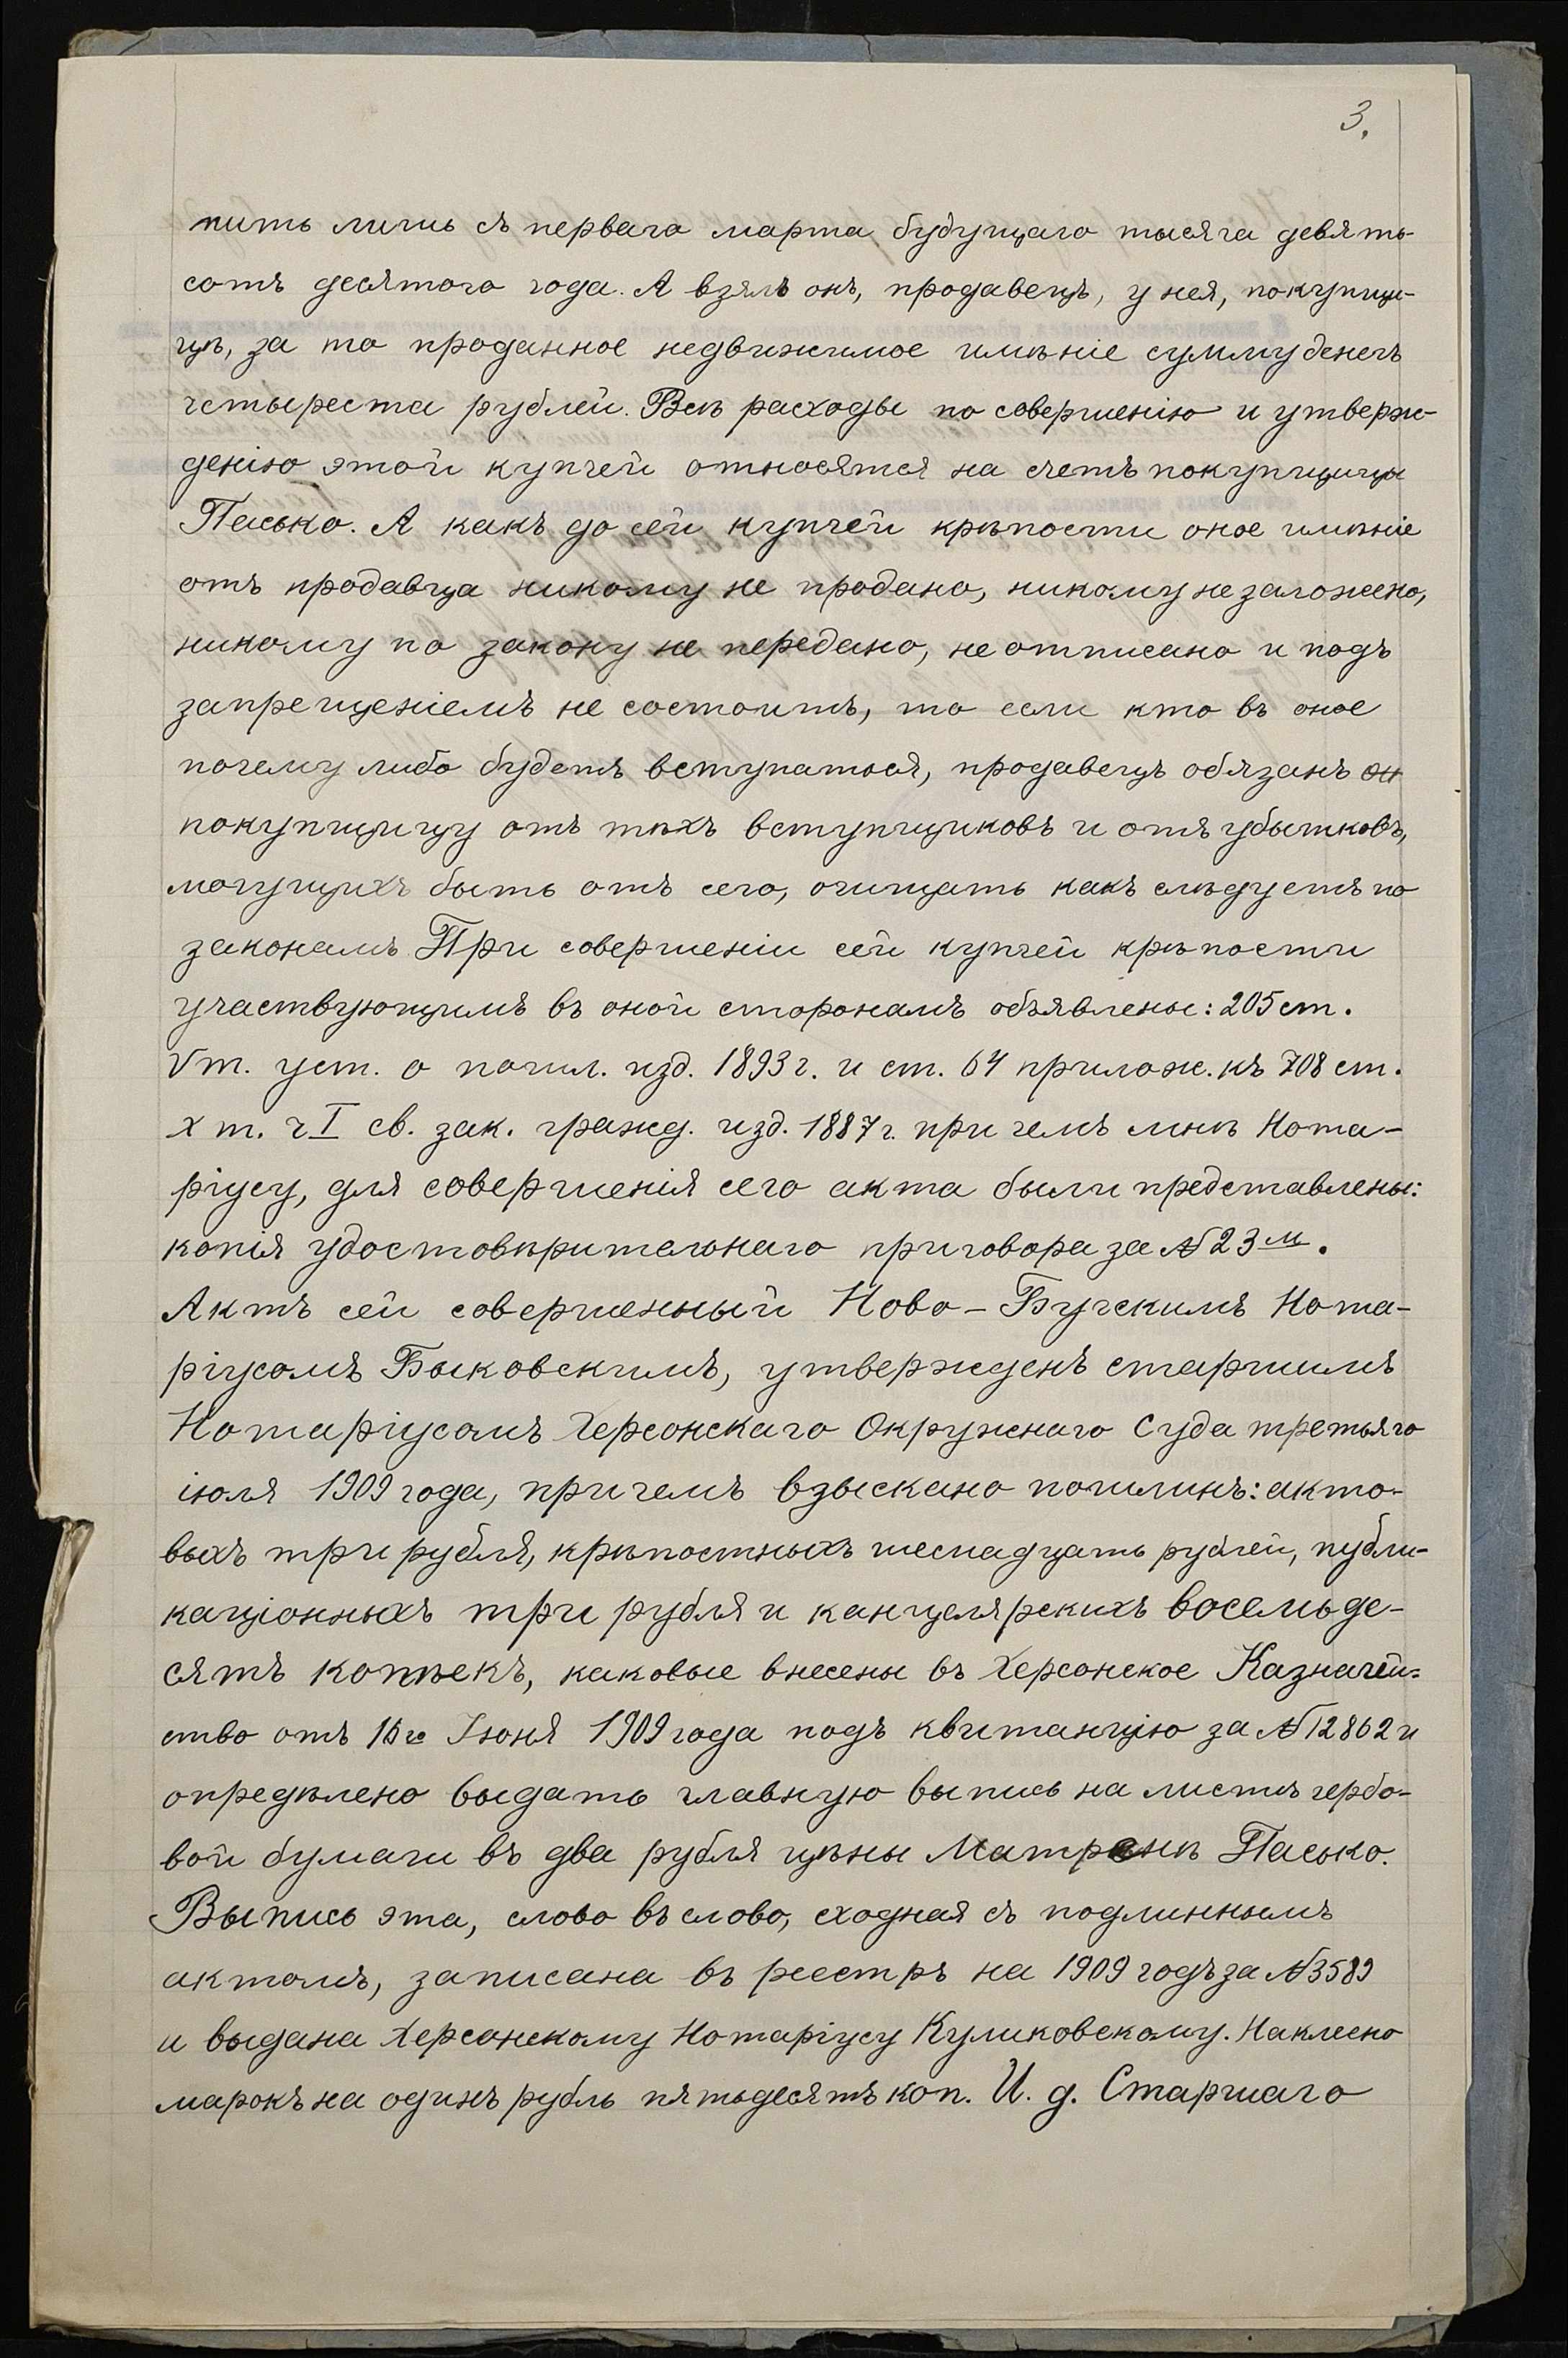 3.
пить лишь съ перваго марта будущаго тысяча девять-
сотъ десятого года. А взялъ онъ, продавецъ, у нея, покупщи-
цѣ, за то проданное недвижимое имѣніе сумму денегъ
четыреста рублей. Всѣ расходы по совершенію и утверж-
денію этой купчей относятся на счетъ покупщицы
Пасько. А какъ до сей купчей крѣпости оное имѣніе
отъ продавца никому не продано, никому не заложено,
никому по закону не передано, не отписано и подъ
запрещеніемъ не состоитъ, то если кто въ оное
почему либо будетъ вступаться, продавецъ обязанъ
покупщицу отъ тѣхъ вступщиковъ и отъ убытковъ,
могущихъ быть отъ сего, очищать какъ слѣдуетъ по
законамъ При совершеніи сей купчей крѣпости
участвующимъ въ оной сторонамъ объявлены: 205 ст.
V т. уст. о пошл. изд. 1893 г. и ст. 64 прилож. къ 708 ст.
X т. ч I св. зак. гражд. изд. 1887 г. при чемъ мнѣ Нота-
ріусу, для совершенія сего акта были представлены:
копія удостовѣрительнаго приговора за № 23 м.
Актъ сей совершенный Ново-Бугскимъ Нота-
ріусомъ Быковскимъ, утвержденъ старшимъ
Нотаріусомъ Херсонскаго Окружнаго Суда третьяго
іюля 1909 года, при чемъ взыскано пошлинъ: акто-
выхъ три рубля, крѣпостныхъ шеснадцать рублей, публи-
каціонныхъ три рубля и канцелярскихъ восемьде-
сятъ копѣекъ, каковые внесены въ Херсонское Казначей-
ство отъ Іюня 1909 года подъ квитанцію за № 12862 и
опредѣлено выдать главную выпись на листѣ гербо-
вой бумаги въ два рубля цѣны Матренѣ Пасько.
Выпись эта, слово въ слово, сходная съ подлиннымъ
актомъ, записана въ реестръ на 1909 годъ за № 3589
и выдана Херсонскому Нотаріусу Куликовскому. Наклеено
марокъ на одинъ рубль пятьдесятъ коп. И. д. Старшаго